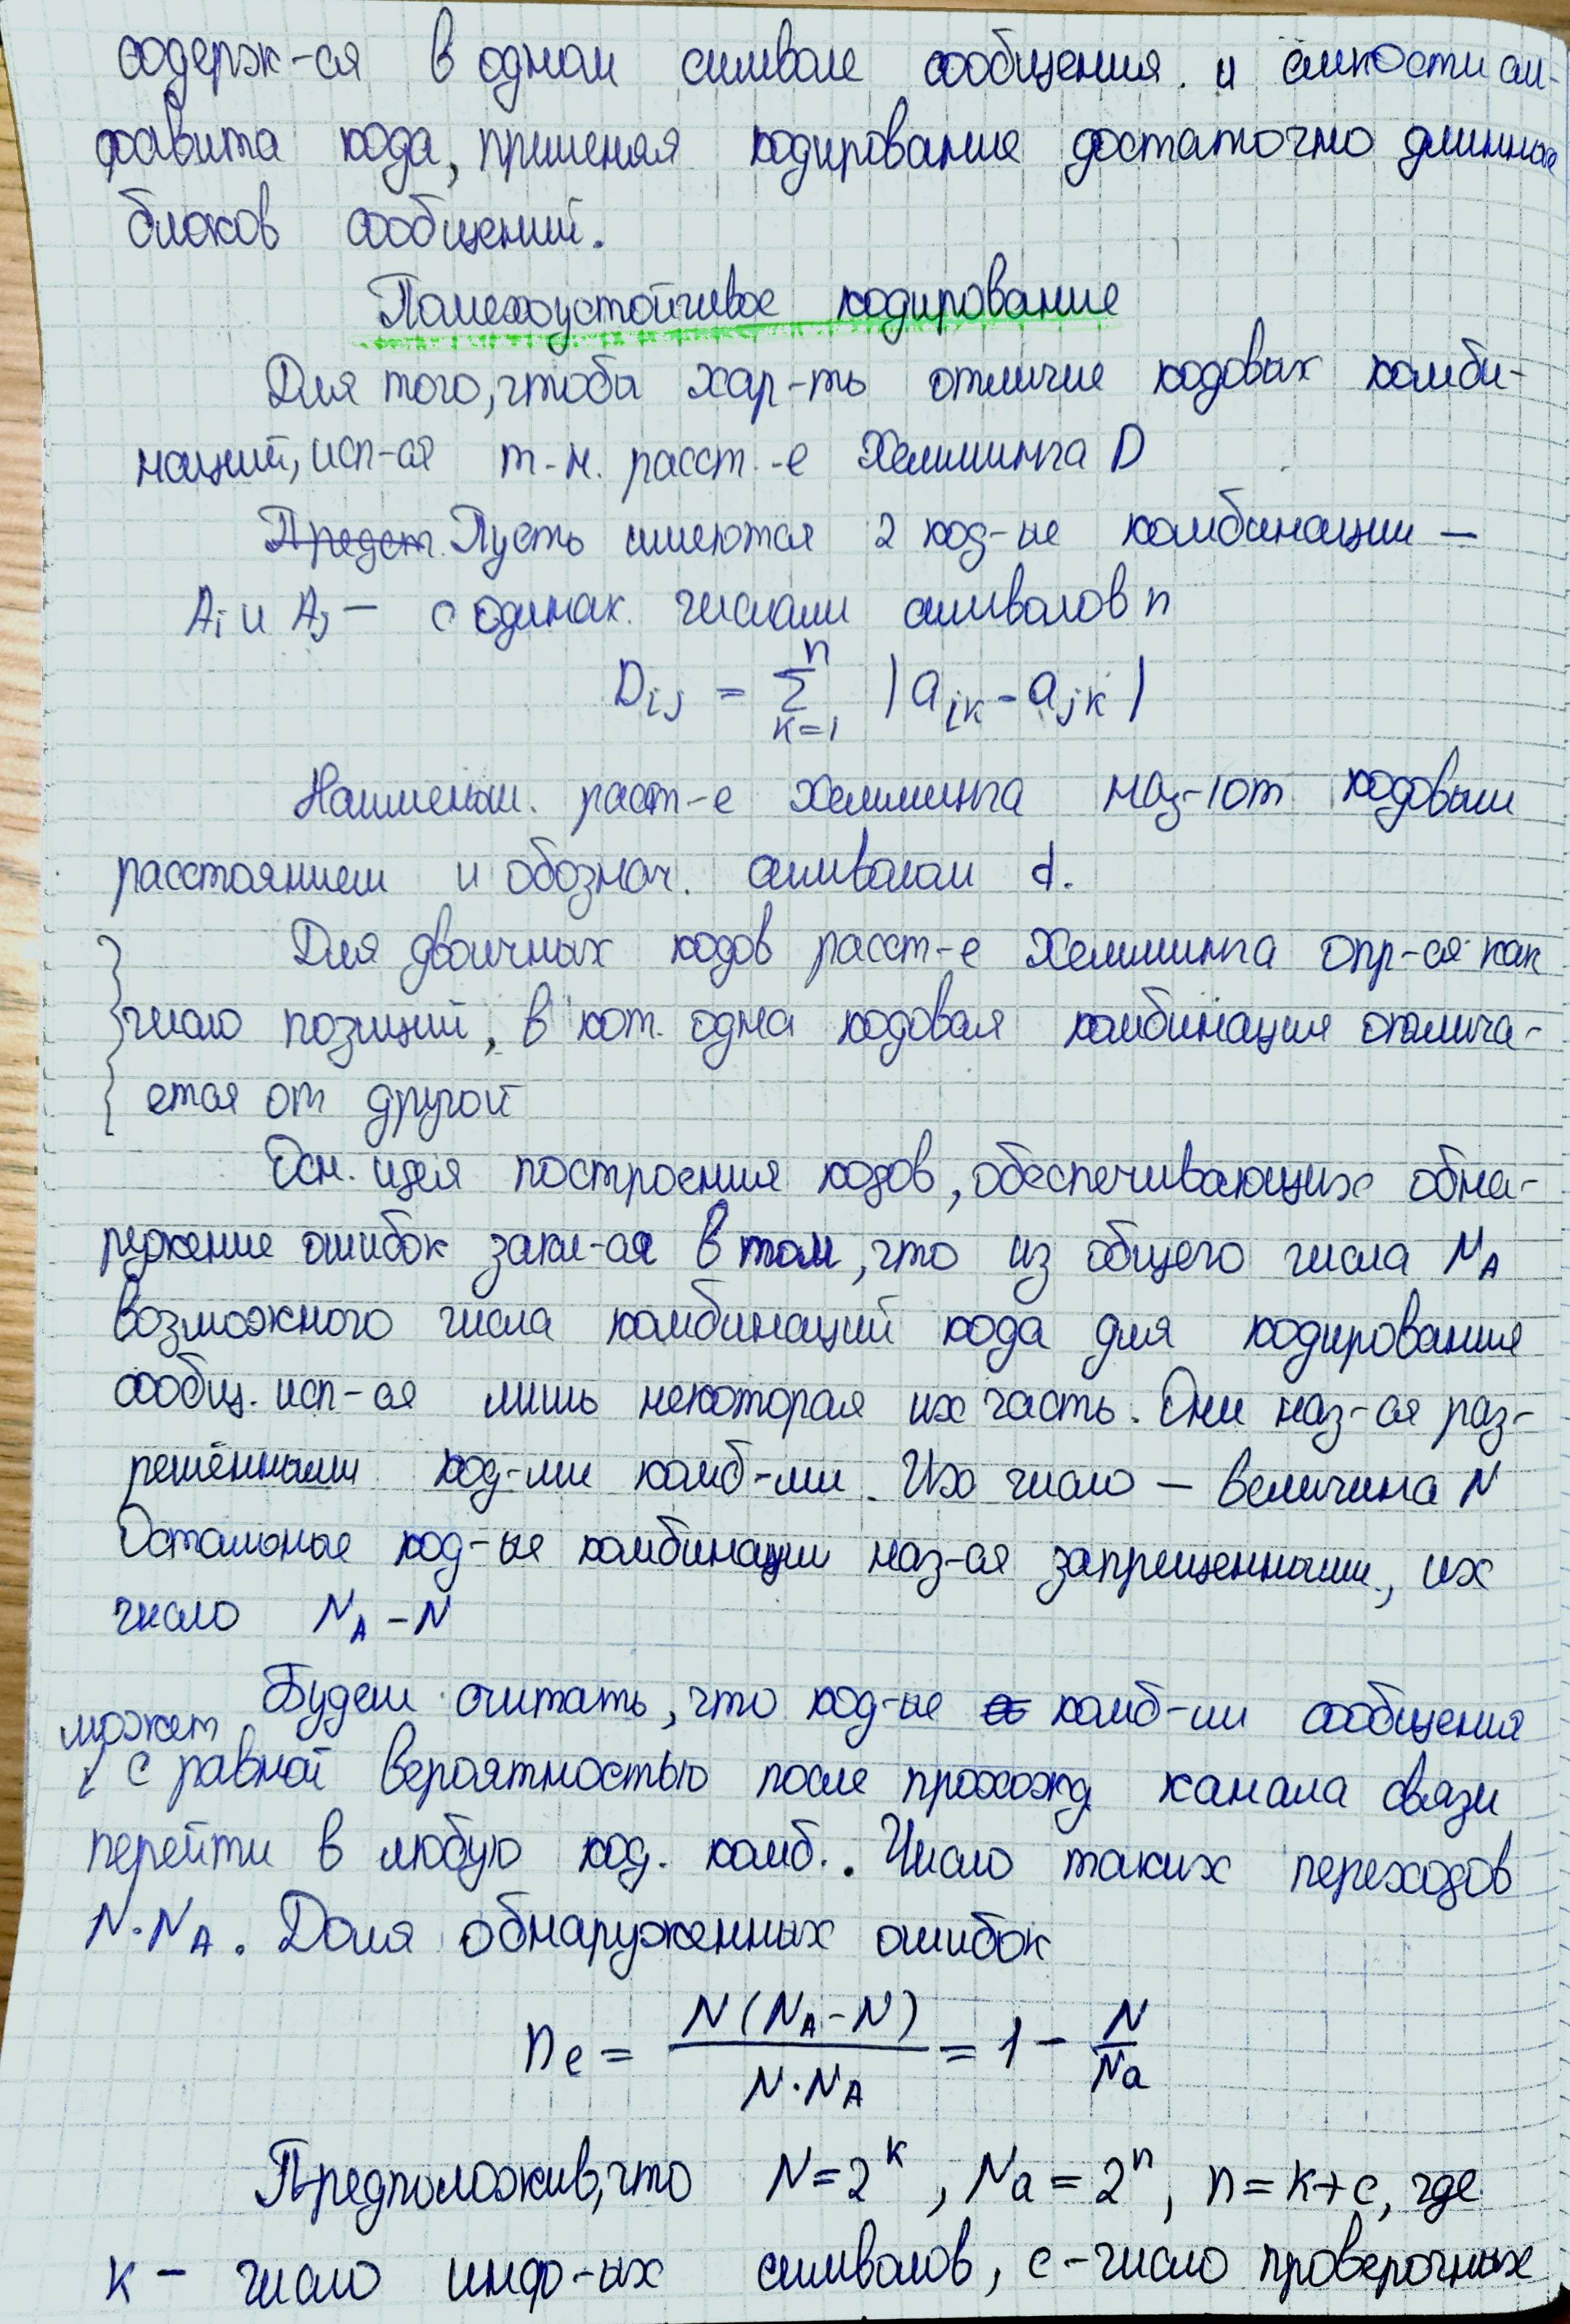 содерж-ся в одном символе сообщения. и ёмкости ал-
фавита кода, применяя кодирование достаточно длинных
блоков сообщений.
Помехоустойчивое кодирование
Для того, чтобы хар-ть отличие кодовых комби-
наций, исп-ся т-н. расст.-е Хемминга D
Предст. Пусть имеются 2 код-ые комбинации —
Ai и Aj — с одинак. числами символов n
Dij = Σ k=1 n |aik - ajk|
Наименьш. расст-е Хемминга наз-ют кодовым
расстоянием и обознач. символом d.
Для двоичных кодов расст-е Хемминга опр-ся как
число позиций, в кот. одна кодовая комбинация отлича-
ется от другой
Осн. идея построения кодов, обеспечивающих обна-
ружение ошибок закл-ся в том, что из общего числа NA
возможного числа комбинаций кода для кодирования
сообщ. исп-ся лишь некоторая их часть. Они наз-ся раз-
решёнными код-ми комб-ми. Их число — величина N
Остальные код-ые комбинации наз-ся запрещенными, их
число NA - N
Будем считать, что код-ые комб-ии сообщения
может
с равной вероятностью после прохожд канала связи
перейти в любую код. комб.. Число таких переходов
N·NA. Доля обнаруженных ошибок
ne = N(NA - N) / N·NA = 1 - N / Na
Предположив, что N = 2^k, Na = 2^n, n = k+c, где
k - число инфо-ых символов, c - число проверочных